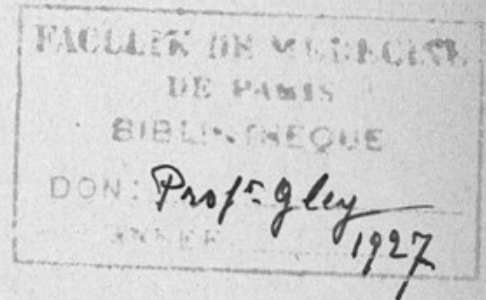 FACULTE DE MEDECINE
DE PARIS
BIBLIOTHEQUE
DON: Profr. Gley
ANNEE 1927